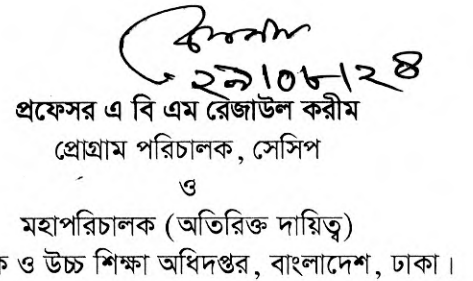 ২৯।০৮।২৪
প্রফেসর এ বি এম রেজাউল করীম
প্রোগ্রাম পরিচালক, সেসিপ
ও
মহাপরিচালক (অতিরিক্ত দায়িত্ব)
ক ও উচ্চ শিক্ষা অধিদপ্তর, বাংলাদেশ, ঢাকা।